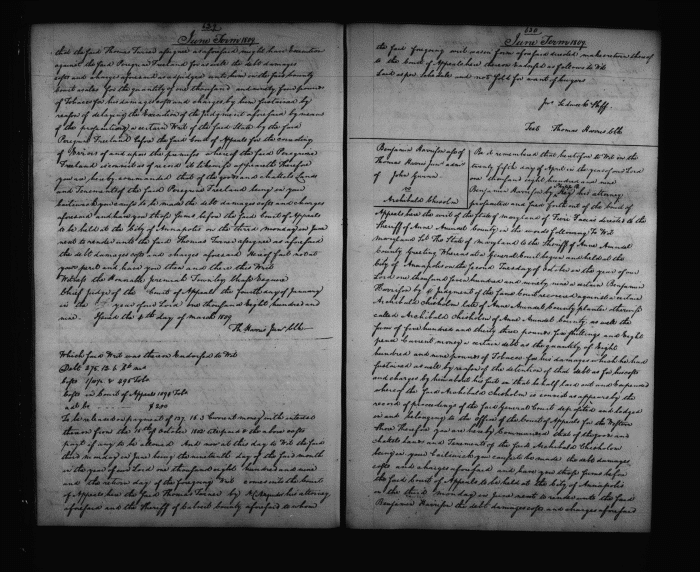 June Term 1809
that the said Thomas Turner assignee as aforesaid might have Execution
against the said Peregrine Freeland for as well the debt damages
costs and charges aforesaid as adjudged unto him in the said County
Court as also for the quantity of one thousand and ninety four pounds
of Tobacco for his damages costs and charges by him sustained by
reason of delaying the Execution of the Judgment aforesaid by means
of the prosecuting a certain Writ of the said State by the said
Peregrine Freeland before the said Court of Appeals for the avoiding
of
Freeland
you as
and Tenements of the said Peregrine Freeland being in your
bailiwick you cause to be made the debt damages costs and charges
aforesaid and have you those sums before the said Court of Appeals
to be held at the City of Annapolis on the third monday in June
next to render unto the said Thomas Turner assignee as aforesaid
the debt damages costs and charges aforesaid. Hereof fail not at
your peril and have you then and there this Writ
Witness the Honorable Jeremiah Townley Chase Esquire
Chief Judge of the Court of Appeals the
in the year of our Lord one thousand eight hundred and
nine Issued the 4th day of March 1809
Th Harris Junr Clk
Which said Writ was thereon Endorsed to Wit
Debt
Costs
Costs in Court of Appeals 1094 Tobo
To be released on payment of 137. 16. 3 Current money with interest
thereon from the 15th October 1802 till paid & the above costs
And now at this day to Wit the said
third monday in June being the nineteenth day of the said month
in the year of our Lord one thousand eight hundred and nine
and the return day of the foregoing Writ comes into the Court
of Appeals here the said Thomas Turner by his attorney
aforesaid and the Sheriff of Calvert County aforesaid to whom
June Term 1809
the said foregoing writ was in form aforesaid directed makes return thereof
to the Court of Appeals here thereon Endorsed as follows to Wit
Laid as per Schedule and not sold for want of buyers
Shff.
Test Thomas Harris Clk
Benjamin Harrison assee of
Thomas Harris Junr
of John Gwinn
vs
Archibald Chisholm
Be it remembered that heretofore to Wit on the
twenty fifth day of April in the year of our Lord
one thousand eight hundred and nine
Benjamin Harrison by his attorney
prosecuted and sued forth out of the Court of
Appeals here the writ of the State of Maryland of Fieri Facias directed to the
Sheriff of Anne Arundel County in the words following To Wit
Maryland Sct The State of Maryland to the Sheriff of Anne Arundel
County Greeting Whereas at a General Court begun and held at the
City of Annapolis on the Second Tuesday of October in the year of our
Lord one thousand seven hundred and ninety nine a certain Benjamin
Harrison by Judgment of the said Court recovered against a certain
Archibald Chisholm late of Anne Arundel County planter otherwise
called Archibald Chisholm of Anne Arundel County as well the
sum of five hundred and thirty three pounds four shillings and eight
pence Current money a certain debt as the quantity of Eight
hundred and nine pounds of Tobacco for his damages which he had
sustained as well by reason of the detention of that debt as for his costs
and charges by him about his suit in that behalf laid out and expended
whereof the said Archibald Chisholm is convict as appears by the
record of proceedings of the said General Court deposited and lodged
in and belonging to the Office of the Court of Appeals for the Western
Shore Therefore you are hereby commanded that of the goods and
chattels lands and Tenements of the said Archibald Chisholm
being in your bailiwick you cause to be made the debt damages
costs and charges aforesaid and have you those sums before
the said Court of Appeals to be held at the City of Annapolis
on the third Monday in June next to render unto the said
Benjamin Harrison the debt damages costs and charges aforesaid